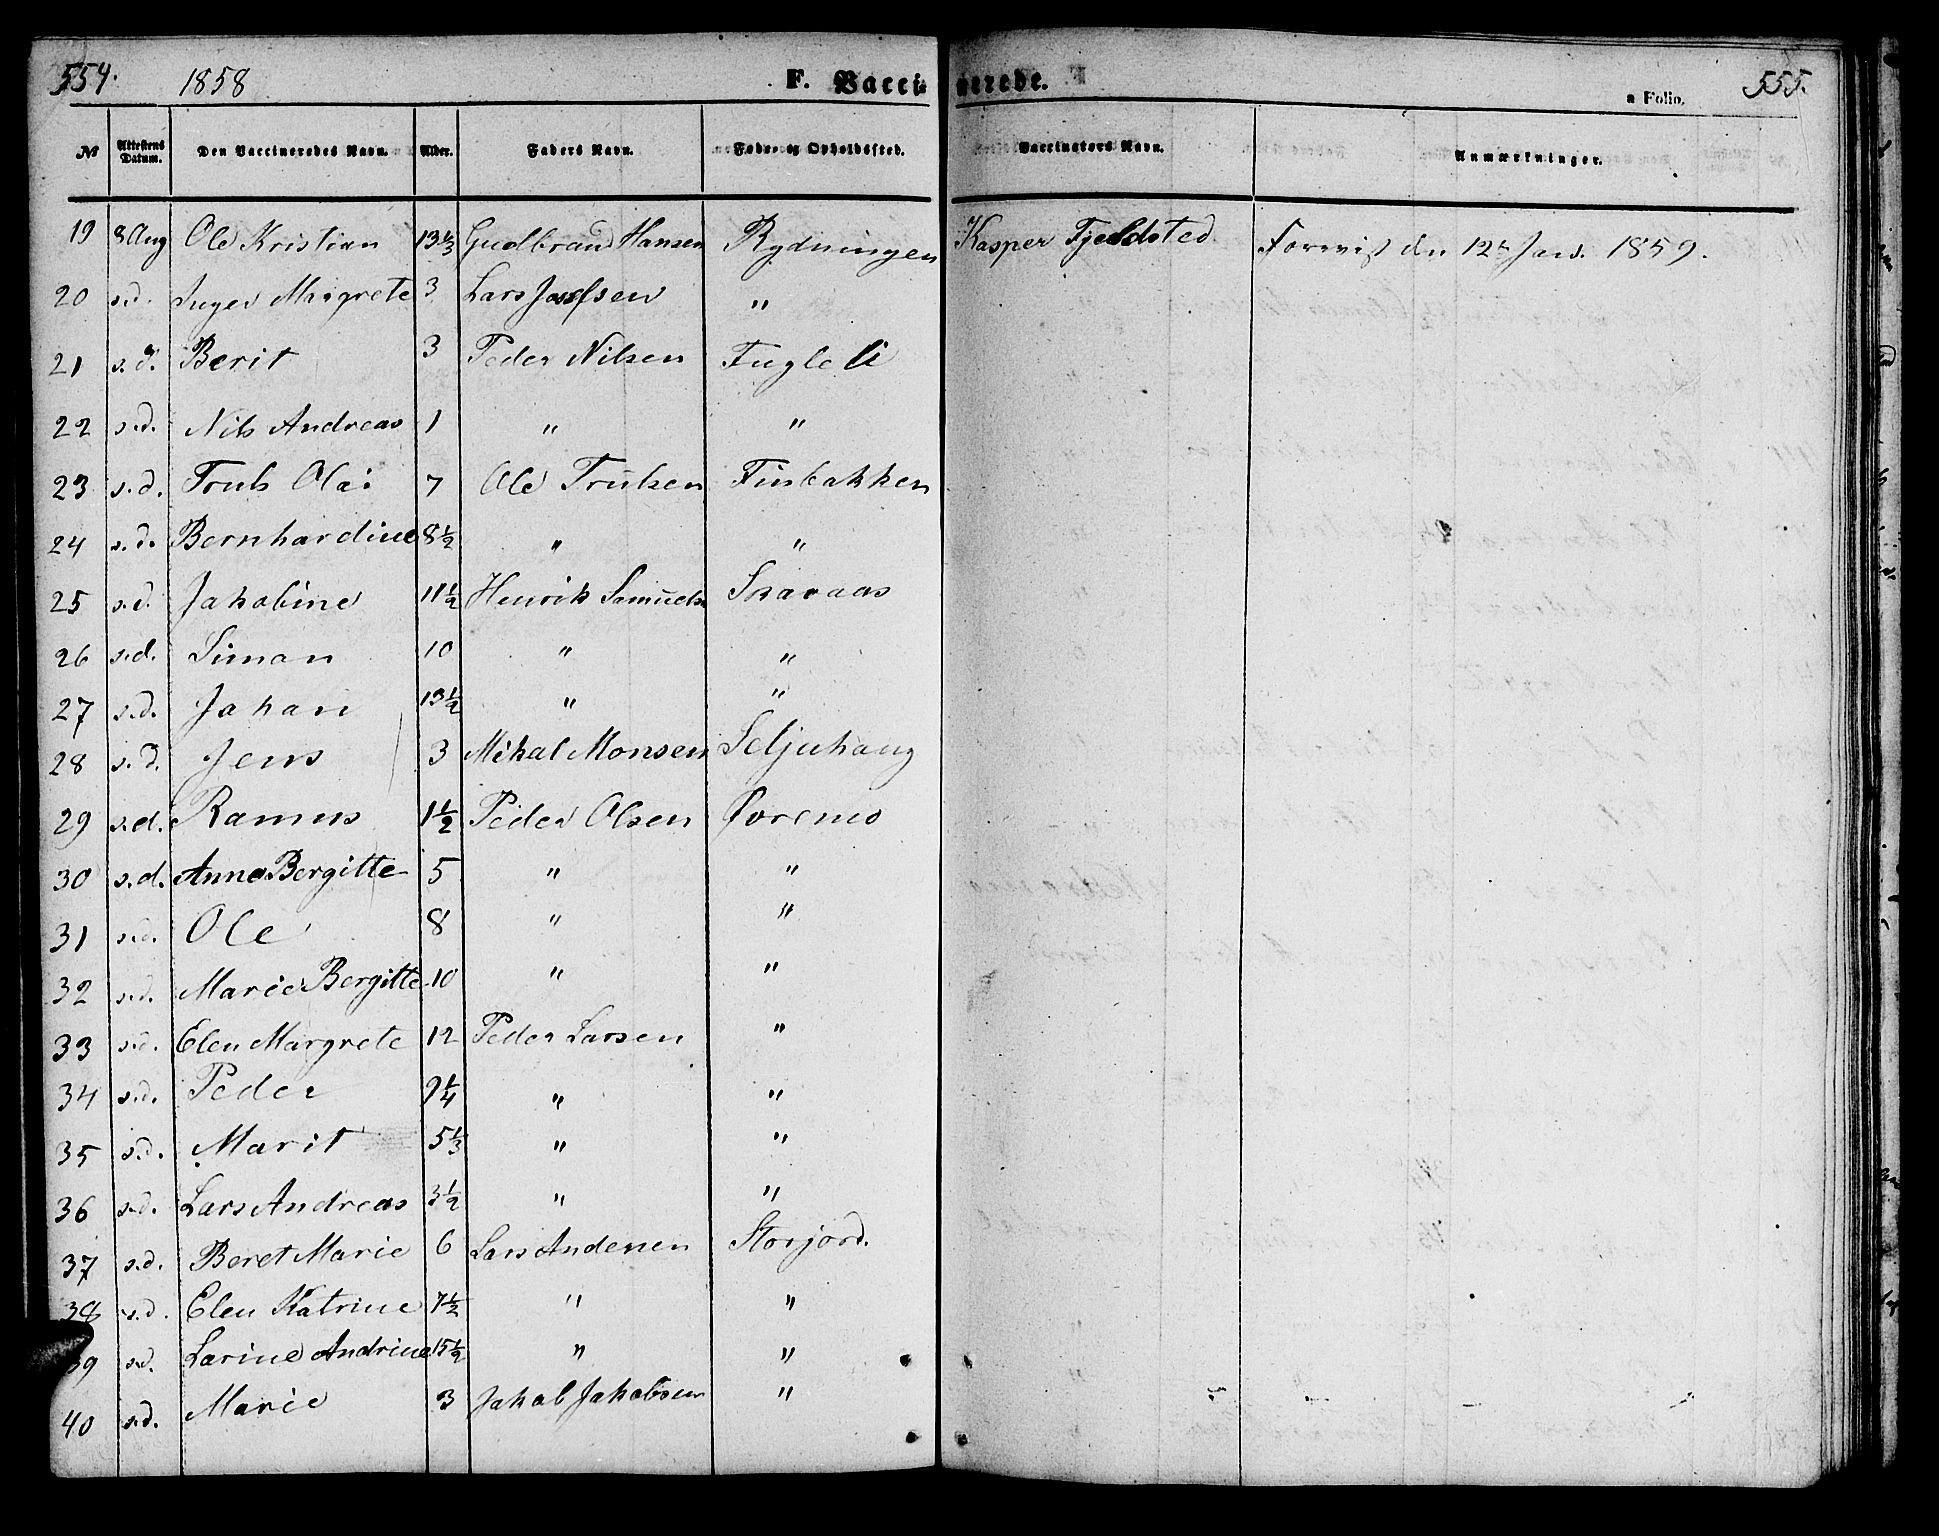 554. 1858 F. Vaccinerede. a Folio. 555.
No Attestens Datum. Den Vaccineredes Navn. Alder. Faders Navn. Føde- og Opholdssted. Vaccinators Navn. Anmærkninger.
19 8 Aug Ole Kristian 13 1/3 Gudbrand Hansen Rydningen Kasper Fjeldsted Forevist den 12te Jan. 1859.
20 s.d. Inger Margrete 3 Lars Josefsen "
21 s.d. Berit 3 Peder Nilsen Fugleli
22 s.d. Nils Andreas 1 " "
23 s.d. Truls Olai 7 Ole Trulsen Finbakken
24 s.d. Bernhardine 8 1/2 " "
25 s.d. Jakobine 11 1/2 Henrik Samuels Skavaas
26 s.d. Simon 10 " "
27 s.d. Johan 13 1/2 " "
28 s.d. Jens 3 Mikal Monsen Seljuhaug
29 s.d. Rasmus 1 1/2 Peder Olsen Øvremo
30 s.d. Anna Bergitte 5 " "
31 s.d. Ole 8 " "
32 s.d. Marie Bergitte 10 " "
33 s.d. Elen Margrete 12 Peder Larsen "
34 s.d. Peder 9 1/4 " "
35 s.d. Marit 5 1/3 " "
36 s.d. Lars Andreas 3 1/2 " "
37 s.d. Beret Marie 6 Lars Andersen Storjord.
38 s.d. Elen Katrine 7 1/2 " "
39 s.d. Larine Andrine 15 1/2 " "
40 s.d. Marie 3 Jakob Jakobsen "